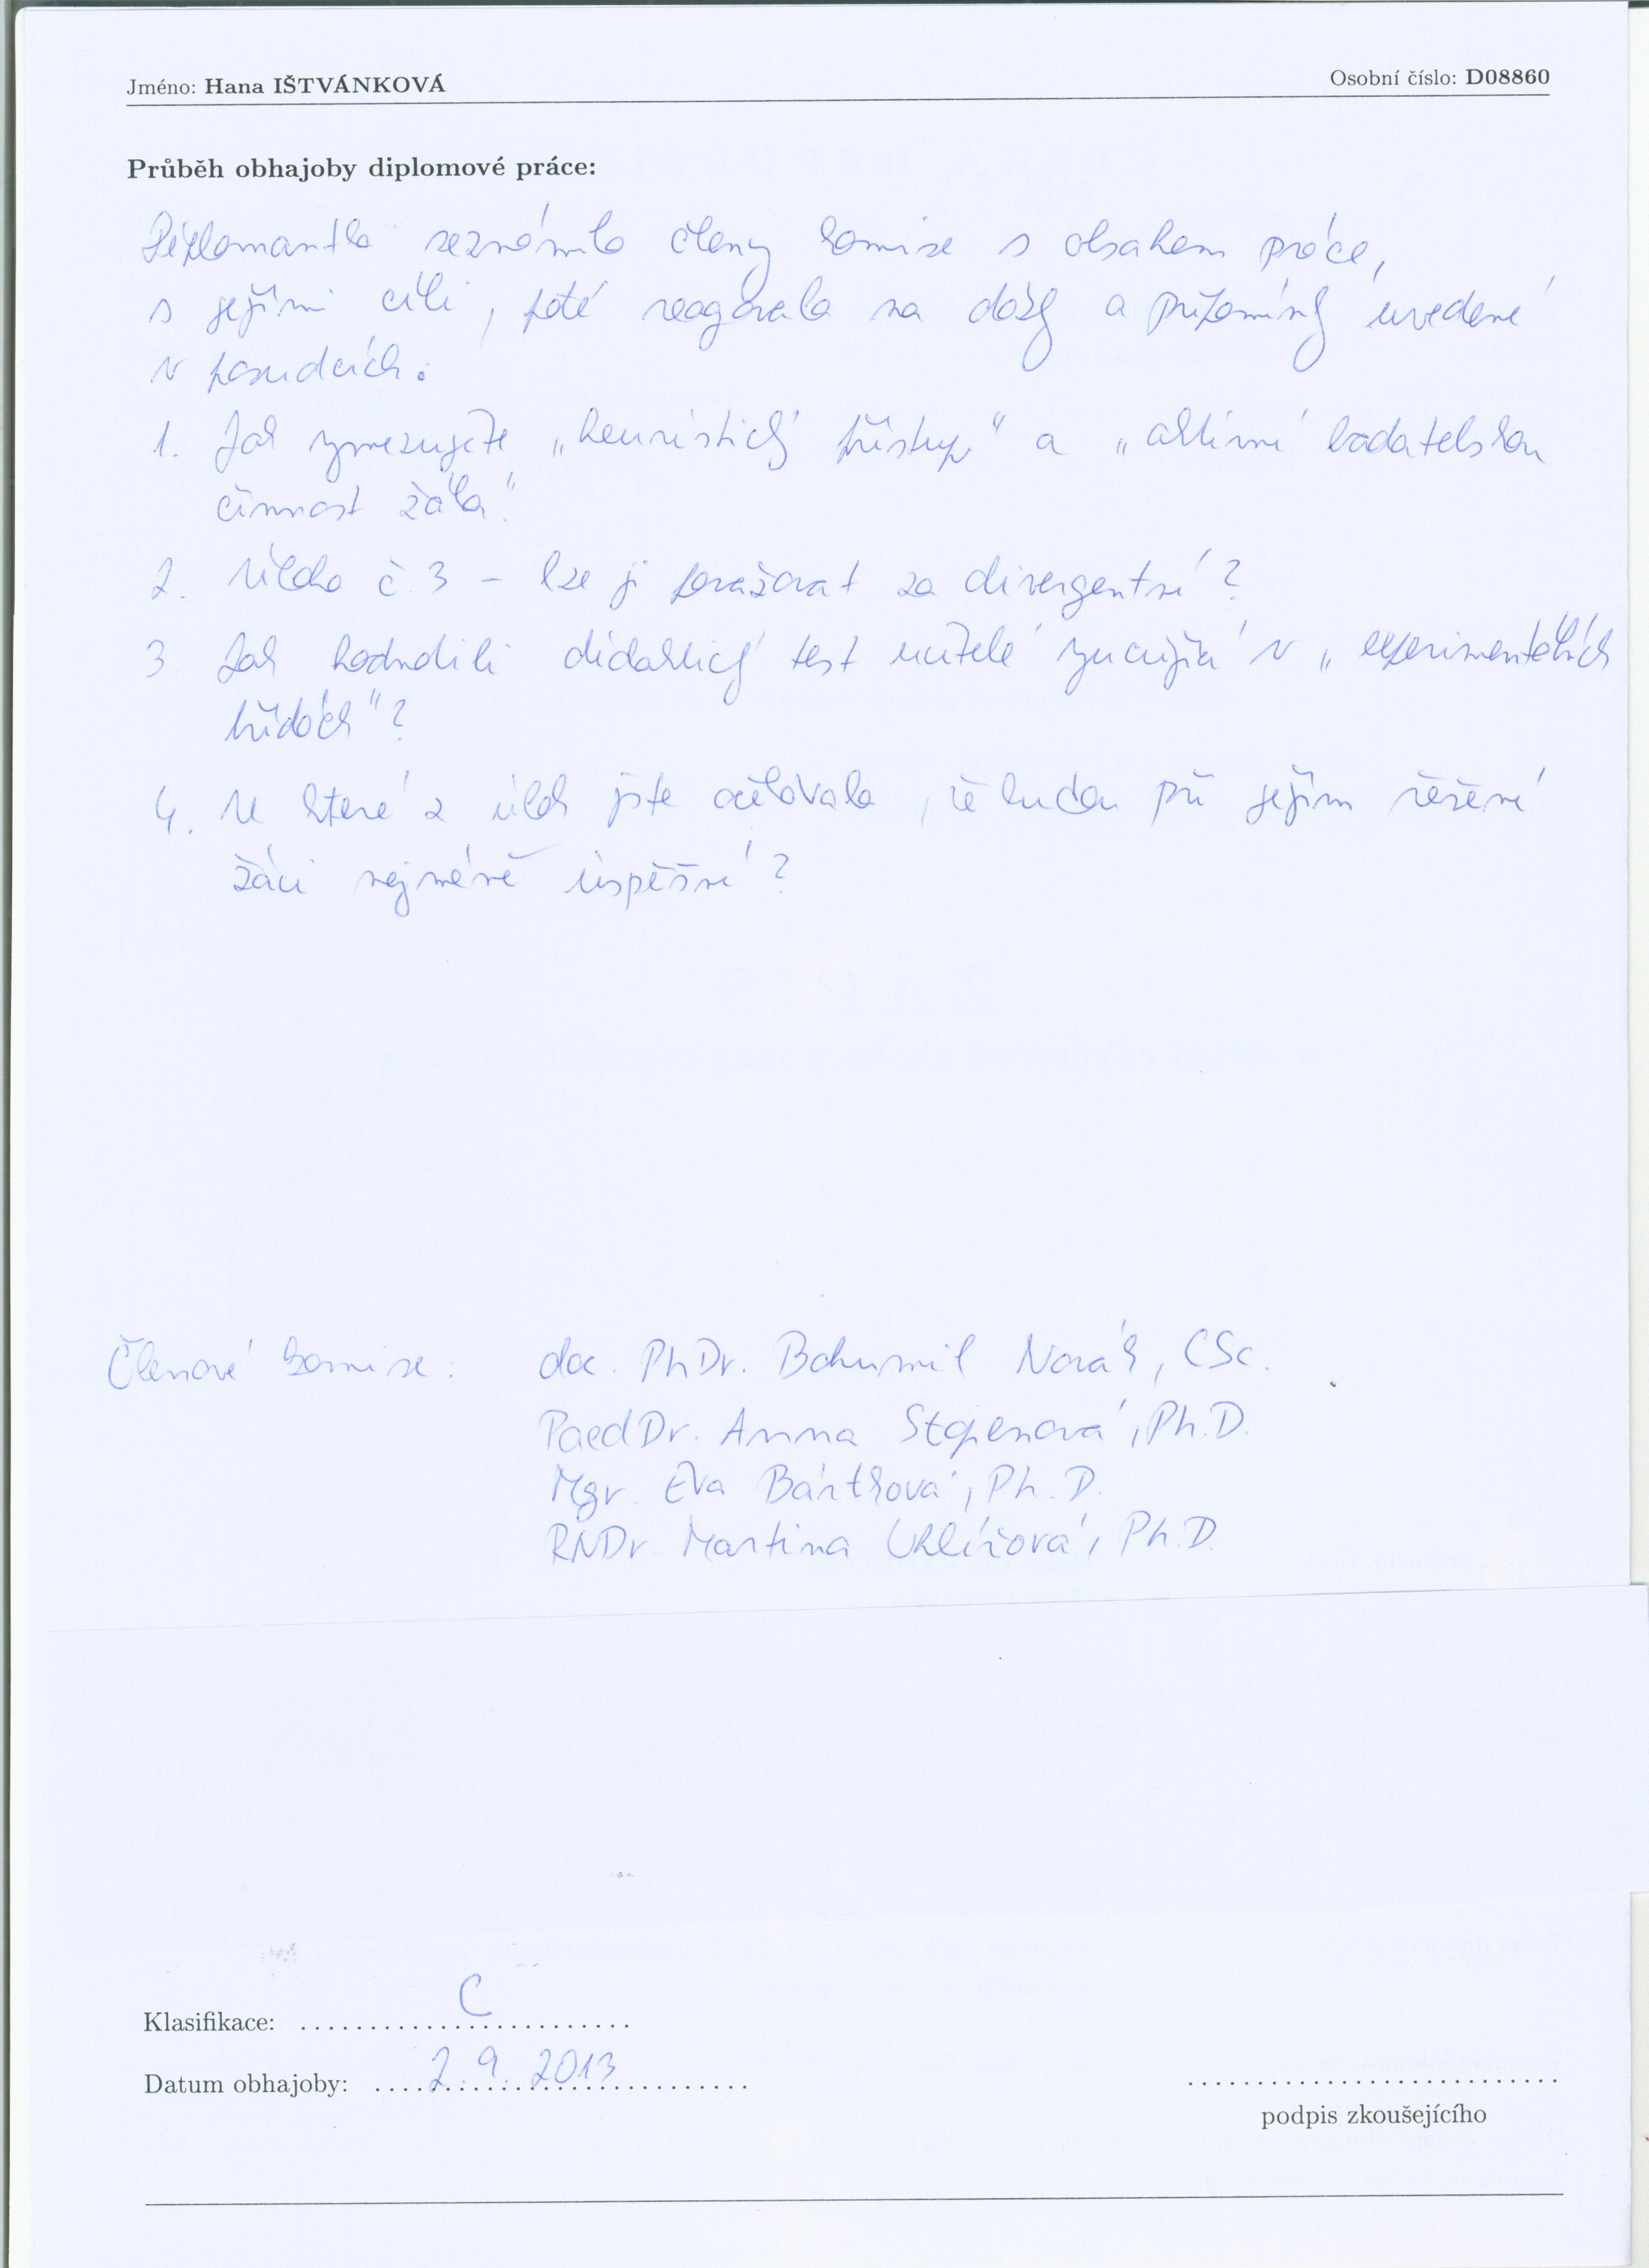 Jméno: Hana IŠTVÁNKOVÁ Osobní číslo: D08860
Průběh obhajoby diplomové práce:
Diplomantka seznámila členy komise s obsahem práce,
s jejími cíli, poté reagovala na dotazy a připomínky uvedené
v posudcích.
1. Jak vymezujete „heuristický přístup“ a „aktivní badatelskou
činnost žáka“.
2. Úloha č. 3 – lze ji považovat za divergentní?
3. Jak hodnotili didaktický test učitelé vyučující v „experimentálních
třídách“?
4. U které z úloh jste očekávala, že budou při jejím řešení
žáci nejméně úspěšní?
Členové komise: doc. PhDr. Bohumil Novák, CSc.
PaedDr. Anna Stopenová, Ph.D.
Mgr. Eva Bártková, Ph.D.
RNDr. Martina Uhlířová, Ph.D.
Klasifikace: C
Datum obhajoby: 2. 9. 2013
podpis zkoušejícího